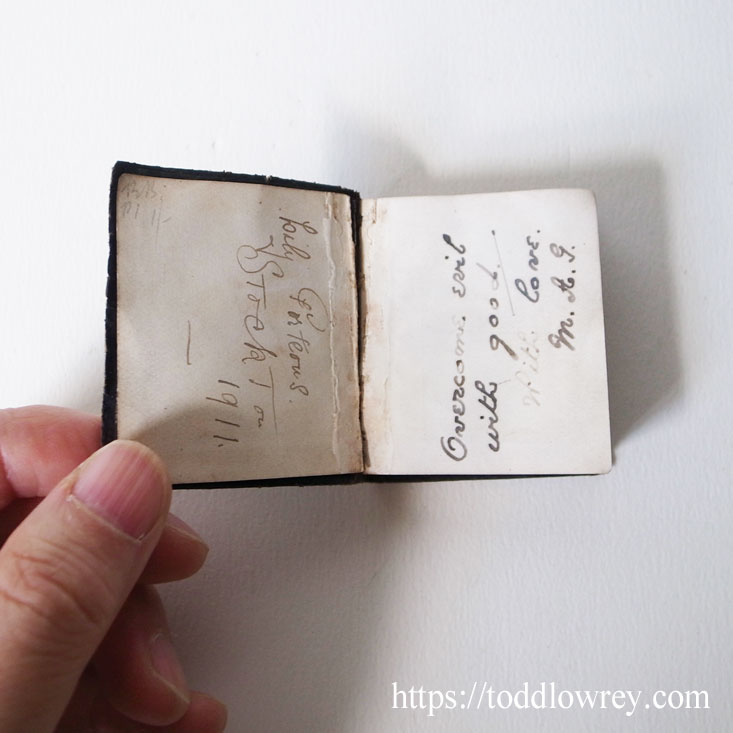 Lily Porteous.
Stockton
1911.
Overcome evil
with good.
With love.
M. A. G.
https://toddlowrey.com